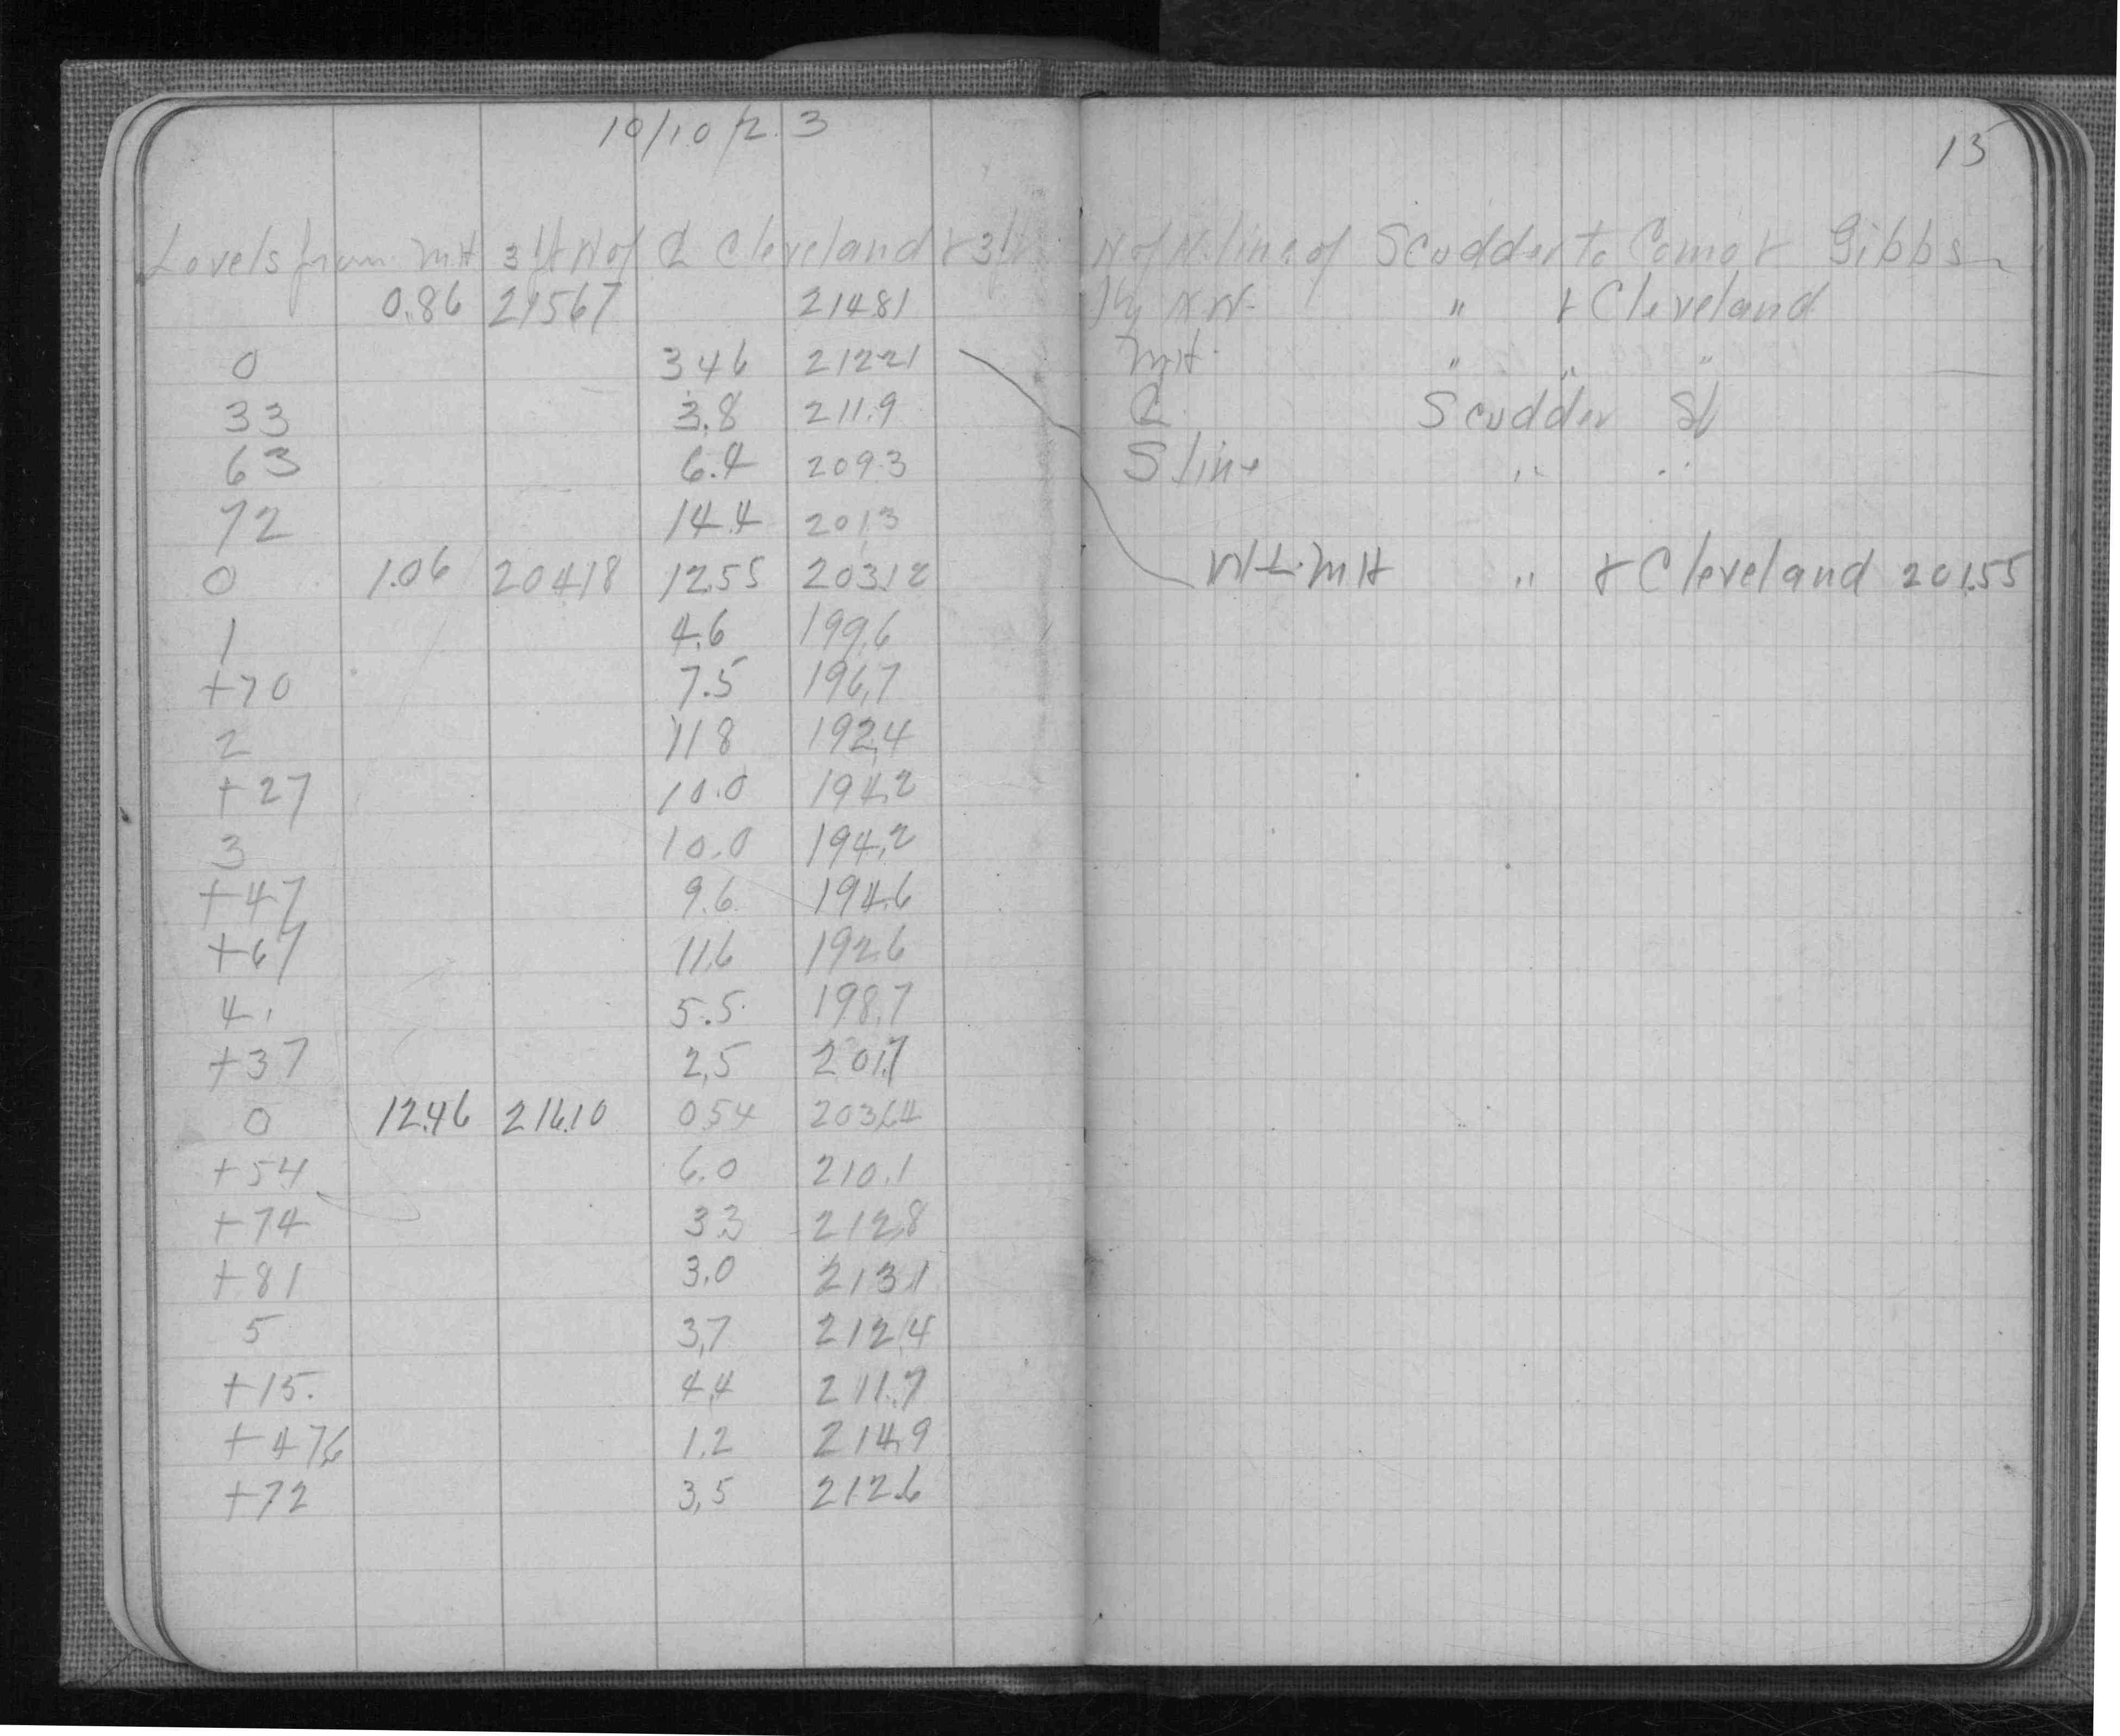 10/10/23
15
Levels from MH 3 ft N of ℄ Cleveland & 3 ft N of N. line of Scudder to Como & Gibbs
0.86 215.67 214.81 Hy N.W. " & Cleveland
0 3.46 212.21 MH. " " "
33 3.8 211.9 ℄ Scudder St
63 6.4 209.3 S line " "
72 14.4 201.3
0 1.06 204.18 12.55 203.12 W.L. MH " & Cleveland 201.55
1 4.6 199.6
+70 7.5 196.7
2 11.8 192.4
+27 10.0 194.2
3 10.0 194.2
+47 9.6 194.6
+67 11.6 192.6
4. 5.5 198.7
+37 2.5 201.7
0 12.46 216.10 0.54 203.64
+54 6.0 210.1
+74 3.3 212.8
+81 3.0 213.1
5 3.7 212.4
+15. 4.4 211.7
+47.6 1.2 214.9
+72 3.5 212.6